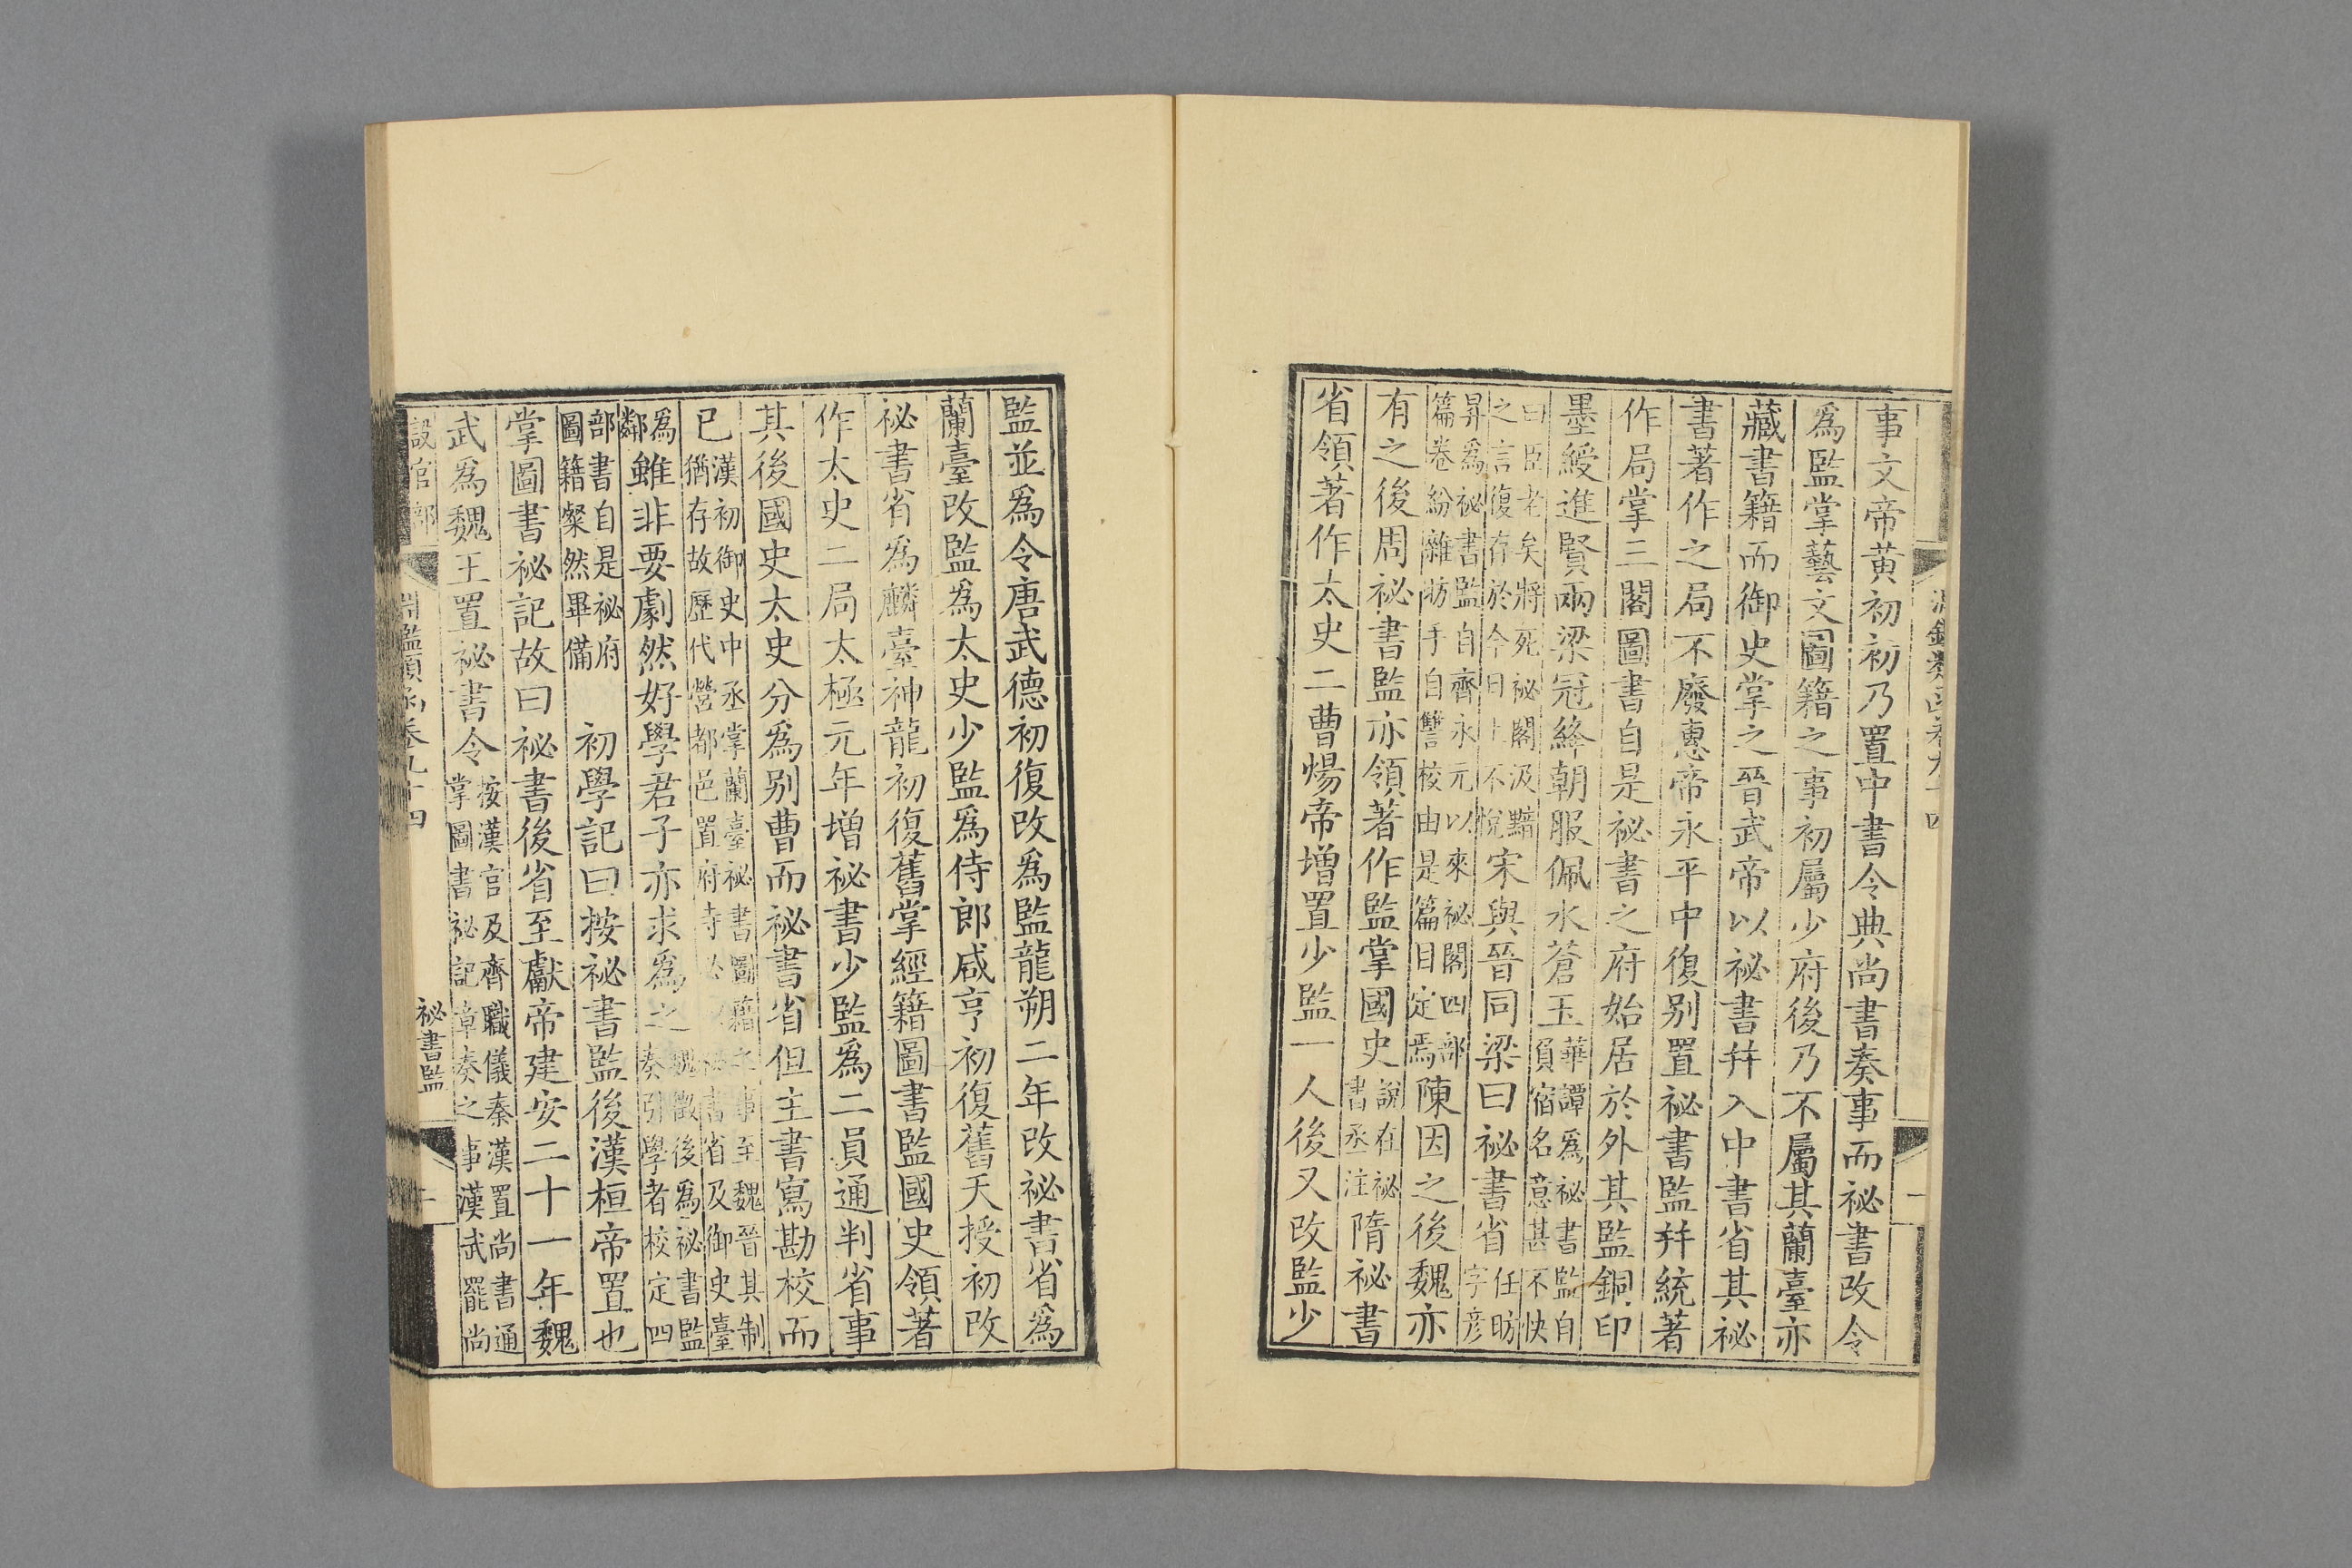 淵鑑類函卷九十四 一
事文帝黃初初乃置中書令典尚書奏事而祕書改令
爲監掌藝文圖籍之事初屬少府後乃不屬其蘭臺亦
藏書籍而御史掌之晉武帝以祕書幷入中書省其祕
書著作之局不廢惠帝永平中復別置祕書監幷統著
作局掌三閣圖書自是祕書之府始居於外其監銅印
墨綬進賢兩梁冠絳朝服佩水蒼玉華譚爲祕書監自負宿名意甚不快
曰臣老矣將死祕閣汲黯之言復存於今日上不悅宋與晉同梁曰祕書省任昉字彦
昇爲祕書監自齊永元以來祕閣四部篇卷紛雜昉手自讐校由是篇目定焉陳因之後魏亦
有之後周祕書監亦領著作監掌國史說在祕書丞注隋祕書
省領著作太史二曹煬帝增置少監一人後又改監少
監並爲令唐武德初復改爲監龍朔二年改祕書省爲
蘭臺改監爲太史少監爲侍郎咸亨初復舊天授初改
祕書省爲麟臺神龍初復舊掌經籍圖書監國史領著
作太史二局太極元年增祕書少監爲二員通判省事
其後國史太史分爲別曹而祕書省但主書寫勘校而
已漢初御史中丞掌蘭臺祕書圖籍之事至魏晉其制猶存故歷代營都邑置府寺必以祕書省及御史臺
爲鄰雖非要劇然好學君子亦求爲之魏徵後爲祕書監奏引學者校定四
部書自是祕府圖籍粲然畢備 初學記曰按祕書監後漢桓帝置也
掌圖書祕記故曰祕書後省至獻帝建安二十一年魏
武爲魏王置祕書令按漢官及齊職儀秦漢置尚書通掌圖書祕記章奏之事漢武罷尚
設官部 淵鑑類函卷九十四 祕書監 二